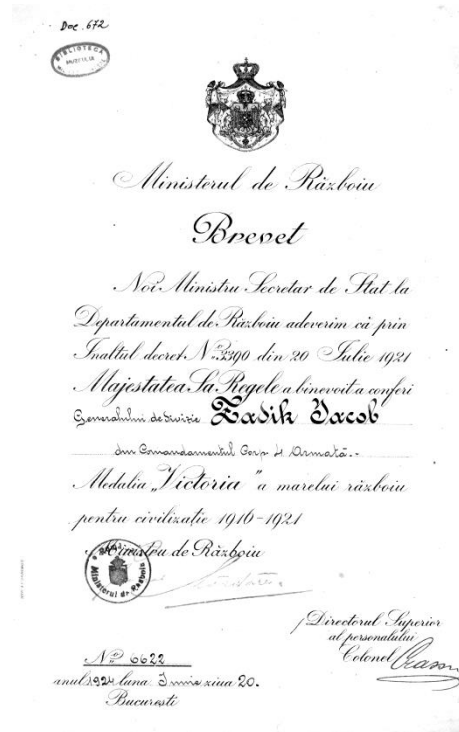 Doc. 672
BIBLIOTECA
Ministerul de Război
Brevet
Noi Ministru Secretar de Stat la
Departamentul de Război adeverim că prin
Inaltul decret Nº 3390 din 20 Iulie 1921
Majestatea Sa Regele a binevoit a conferi
Generalului de divizie Zadik Iacob
din Comandamentul Corp 4 Armată.-
Medalia „Victoria" a marelui război
pentru civilizație 1916-1921
Ministru de Război
Ministerul de Război
p Directorul Superior
al personalului
Colonel
Nº 6622
anul 1924 luna Iunie ziua 20.
București